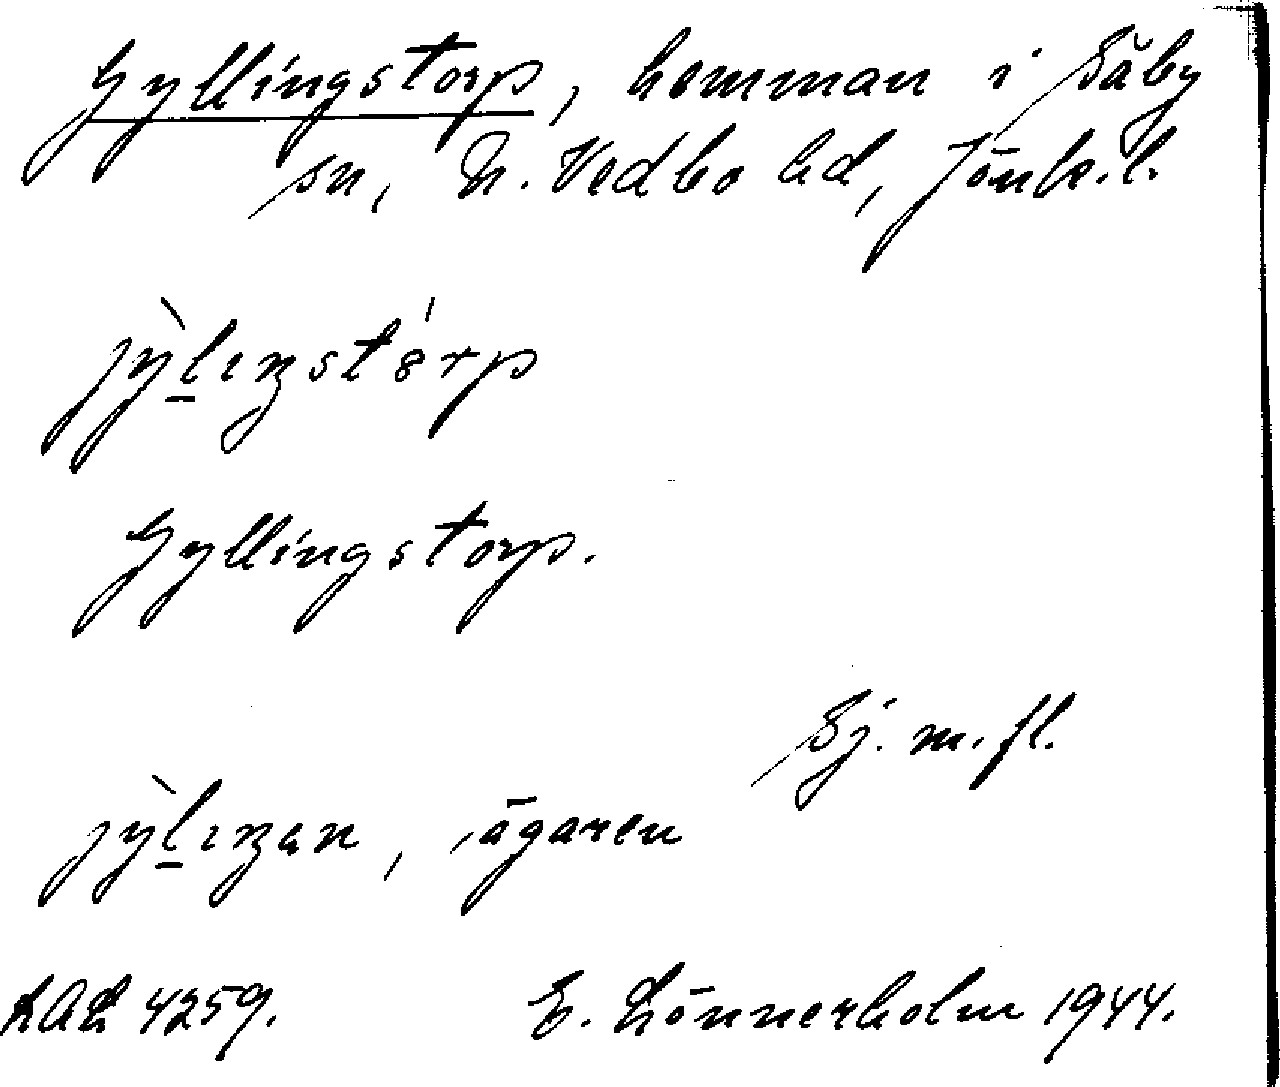 Gyllingstorp, hemman i Säby
sn, N. Vedbo hd, Jönk. l.
jỳlıŋstórp
Gyllingstorp.
Sj. m. fl.
jỳlıŋan, ägaren
4259. E. Lönnerholm 1944.